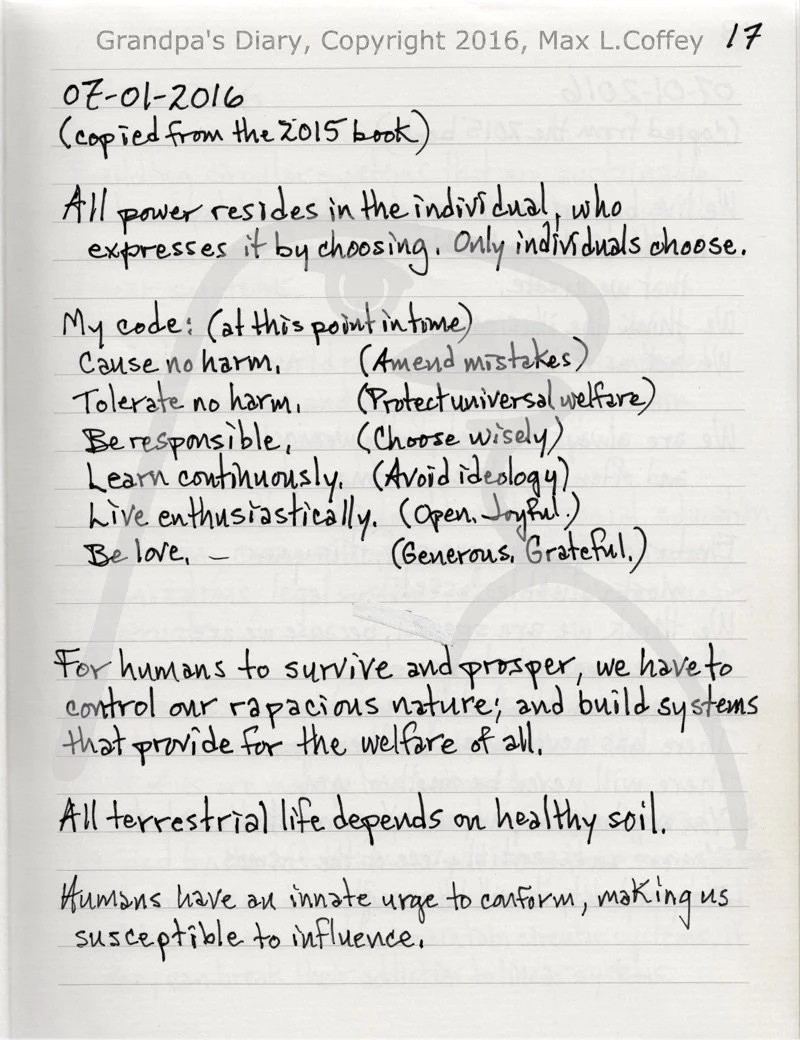 Grandpa's Diary, Copyright 2016, Max L.Coffey 17
07-01-2016
(copied from the 2015 book)
All power resides in the individual, who
expresses it by choosing. Only individuals choose.
My code: (at this point in time)
Cause no harm. (Amend mistakes)
Tolerate no harm. (Protect universal welfare)
Be responsible. (Choose wisely)
Learn continuously. (Avoid ideology)
Live enthusiastically. (Open. Joyful.)
Be love. — (Generous. Grateful.)
For humans to survive and prosper, we have to
control our rapacious nature; and build systems
that provide for the welfare of all.
All terrestrial life depends on healthy soil.
Humans have an innate urge to conform, making us
susceptible to influence.